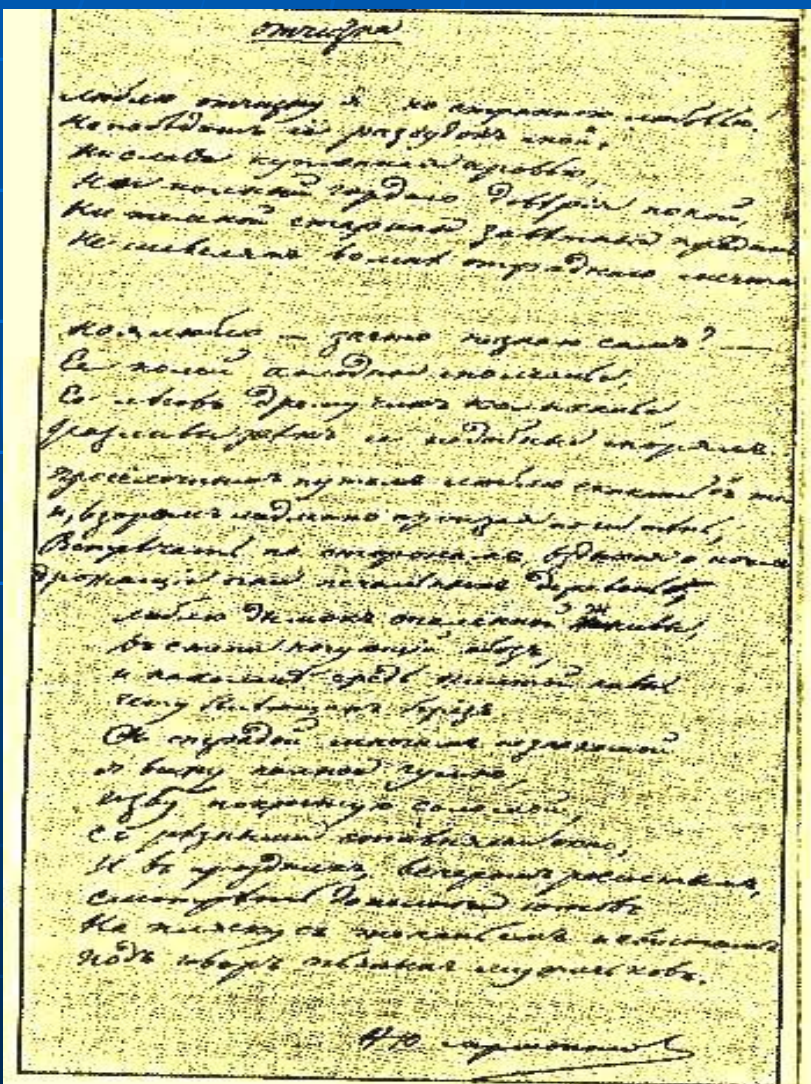 отчизна
Люблю отчизну я но странною любовью!
Не победитъ её разсудокъ мой,
Ни слава купленная кровью,
Ни полный гордаго доверiя покой,
Ни темной старины заветныя преданья
Не шевелятъ во мне отраднаго мечтанья

Но я люблю — за что не знаю самъ? —
Ея полей холодное молчанье,
Ея лѣсовъ дремучихъ колыханье
Разливы рекъ ея подобные морямъ.
Проселочнымъ путемъ люблю скакать въ
И, взоромъ медленно пронзая ночи тень,
Встречать по сторонамъ, вздыхая о ночлеге
Дрожащiе огни печальныхъ деревень.
Люблю дымокъ спаленной жнивы,
Въ степи кочующiй обозъ,
И на холме средь желтой нивы
Чету белеющихъ березъ
Съ отрадой многимъ незнакомой
Я вижу полное гумно,
Избу покрытую соломой,
Съ резными ставнями окно,
И въ праздникъ, вечеромъ росистымъ,
Смотреть до полночи готовъ
На пляску съ топаньемъ и свистомъ
Подъ говоръ пьяныхъ мужичковъ.